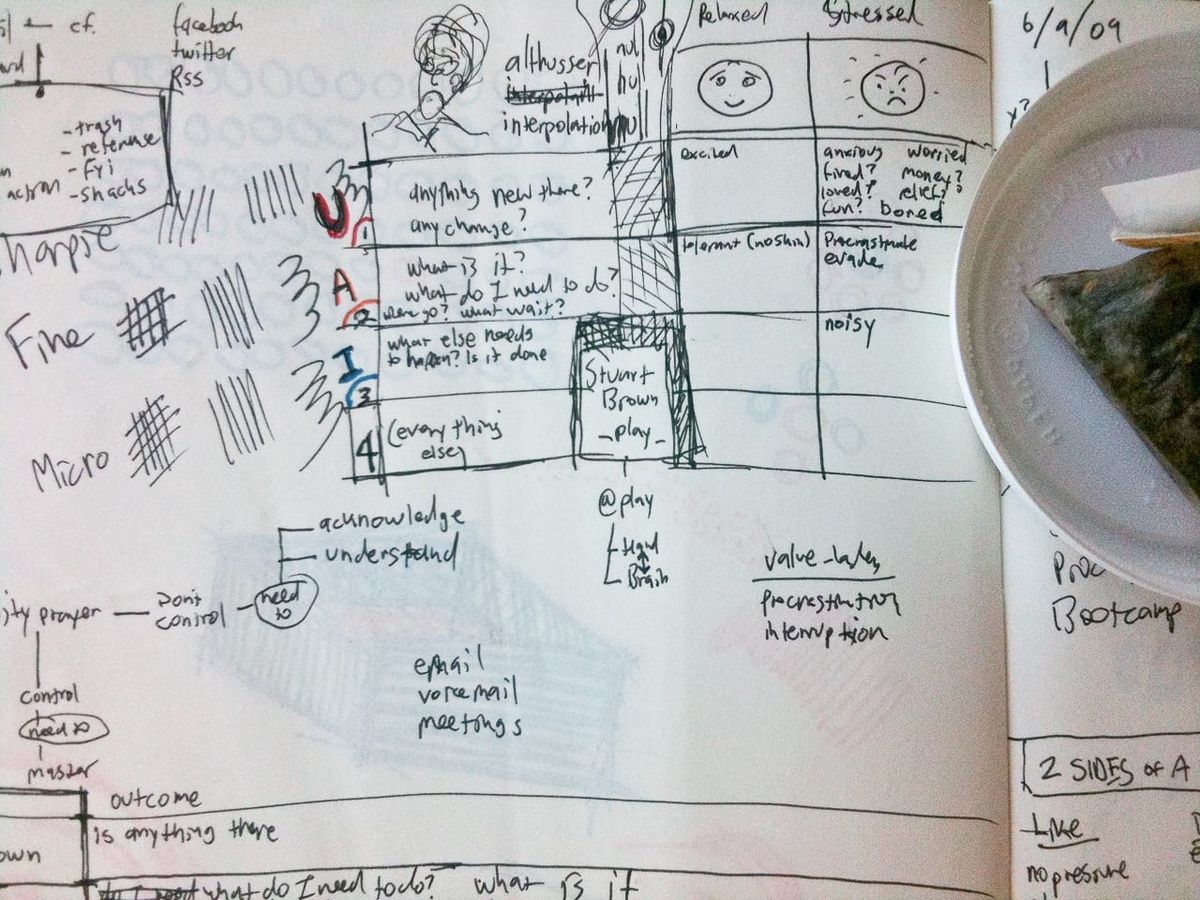 cf.
facebook
twitter
RSS
- trash
- reference
- fyi
action - snacks
Sharpie
Fine
Micro
althusser
interpolation
nul
nu
nu
Relaxed
Stressed
6/9/09
U
1
anything new there?
any change?
excited
anxious worried
fired? money?
loved? relief??
fun? bored
A
2
what is it?
what do I need to do?
where go? what wait?
tolerant (noskin)
Procrastinate
evade
I
3
what else needs
to happen? Is it done
noisy
4
(everything
else)
Stuart
Brown
- play -
@play
Hand
Brain
acknowledge
understand
need
to
Don't
control
ity prayer
control
need to
master
value-laden
procrastination
interruption
email
voicemail
meetings
Proc
Bootcamp
outcome
is anything there
own
what do I need to do? what is it
2 SIDES OF A
LIKE
no pressure